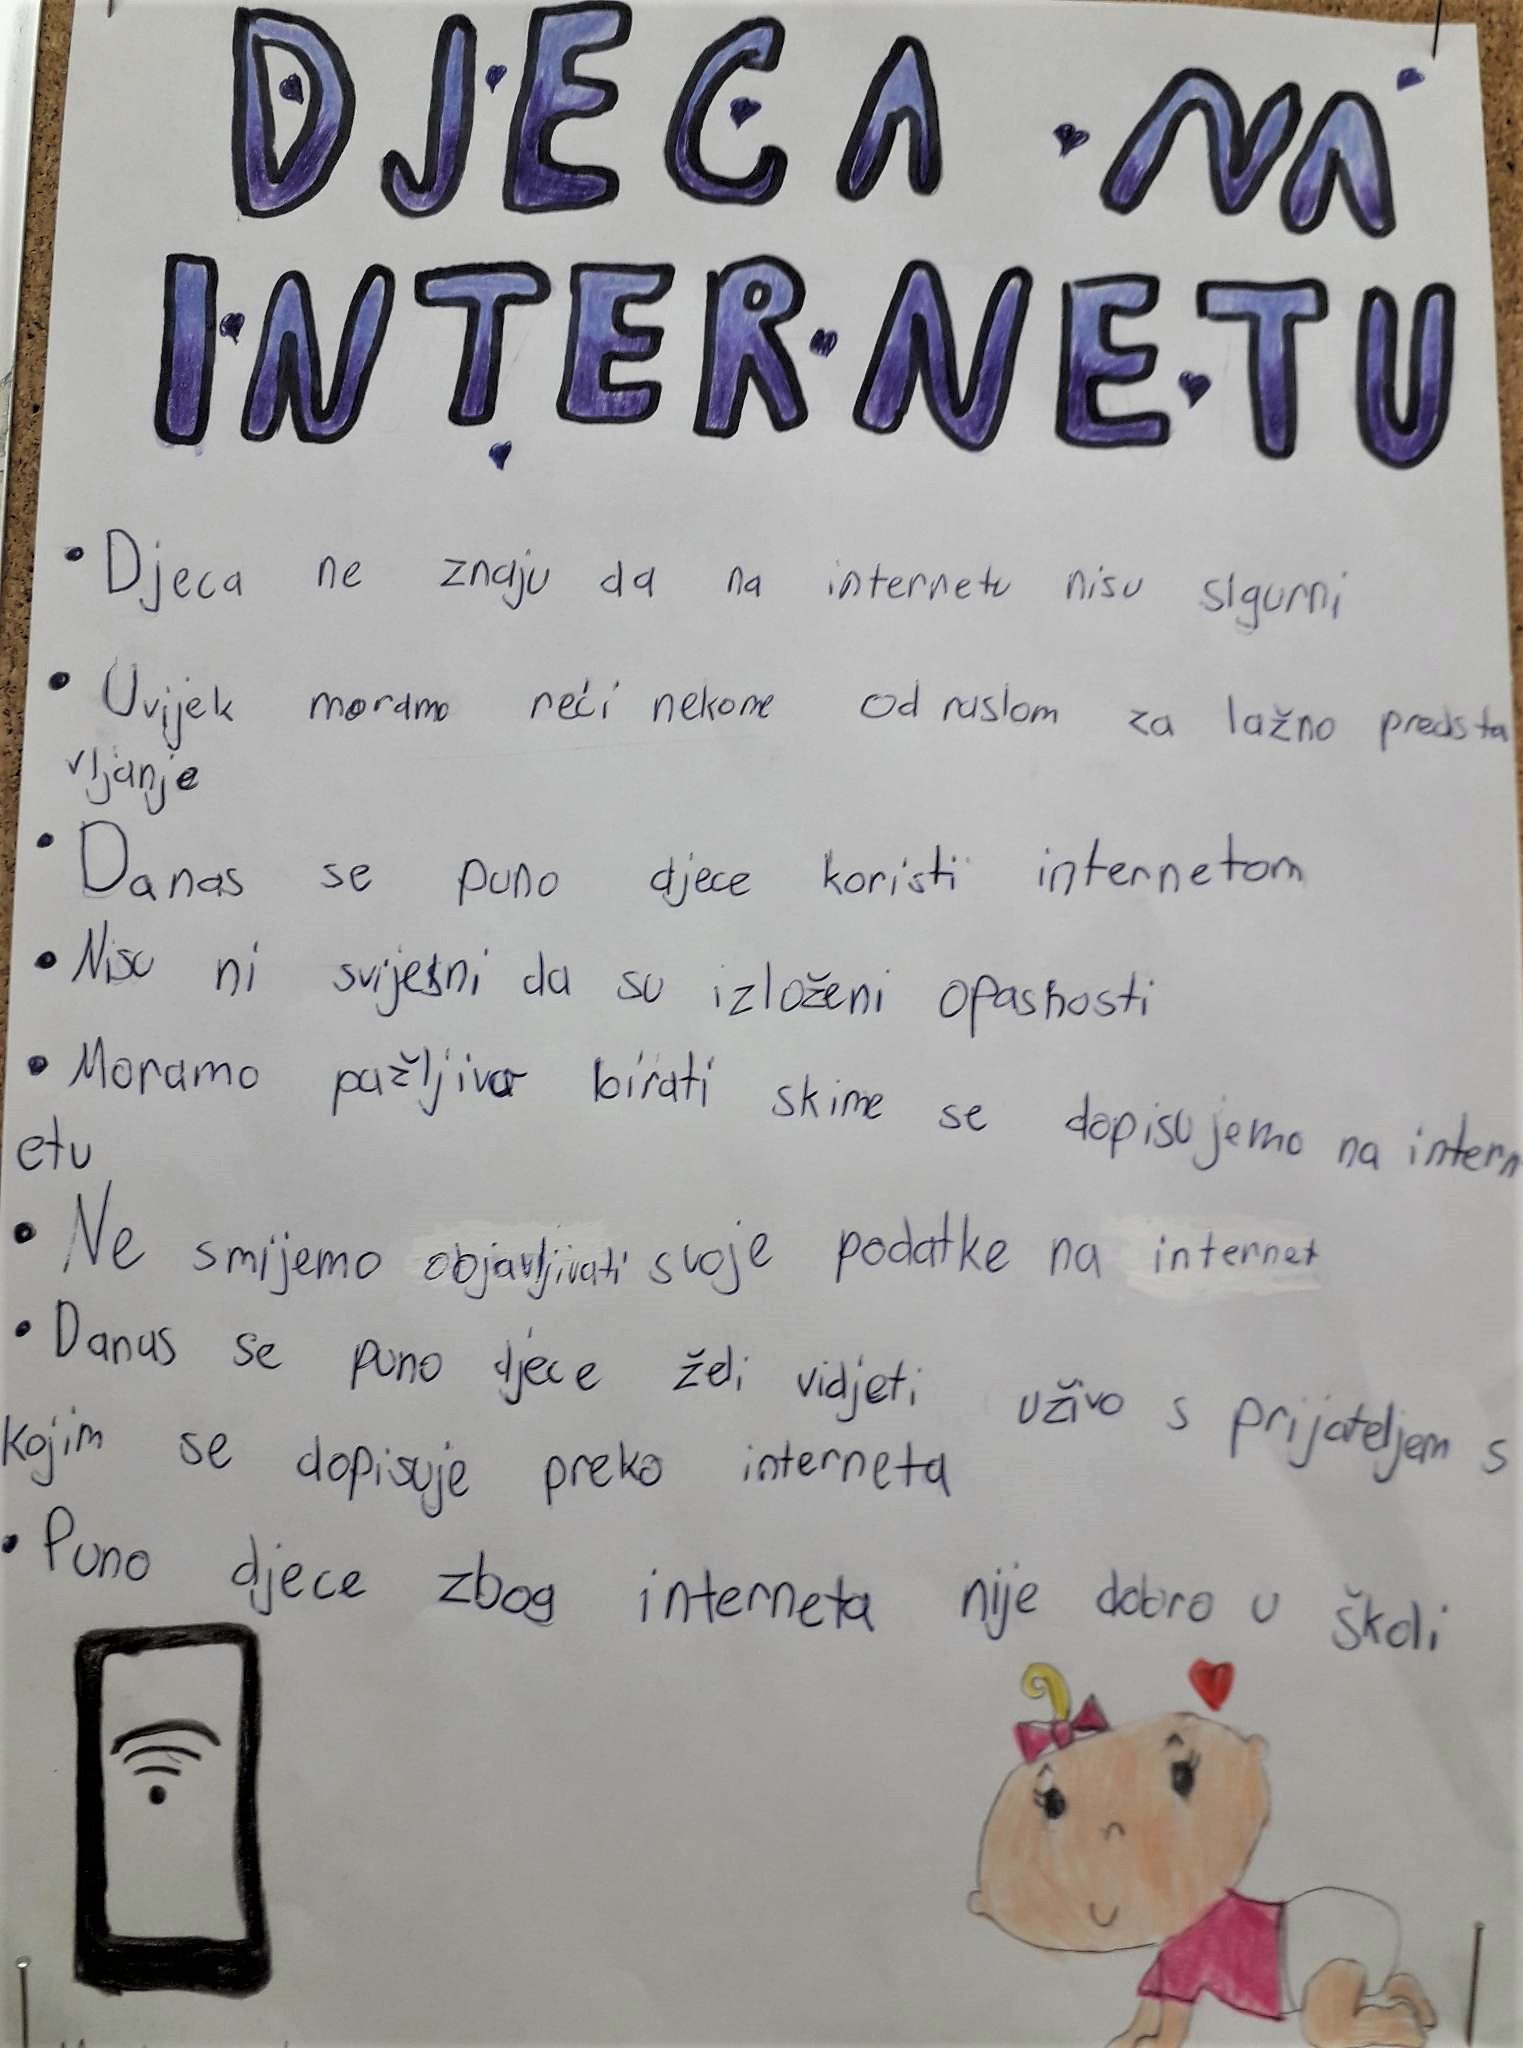 DJECA NA
INTERNETU
• Djeca ne znaju da na internetu nisu sigurni
• Uvijek moramo reći nekome od raslom za lažno predsta
vljanje
• Danas se puno djece koristi internetom
• Nisu ni svijesni da su izloženi opasnosti
• Moramo pažljivo birati skime se dopisujemo na intern
etu
• Ne smijemo objavljivati svoje podatke na internet
• Danas se puno djece želi vidjeti uživo s prijateljem s
kojim se dopisuje preko interneta
• Puno djece zbog interneta nije dobro u školi